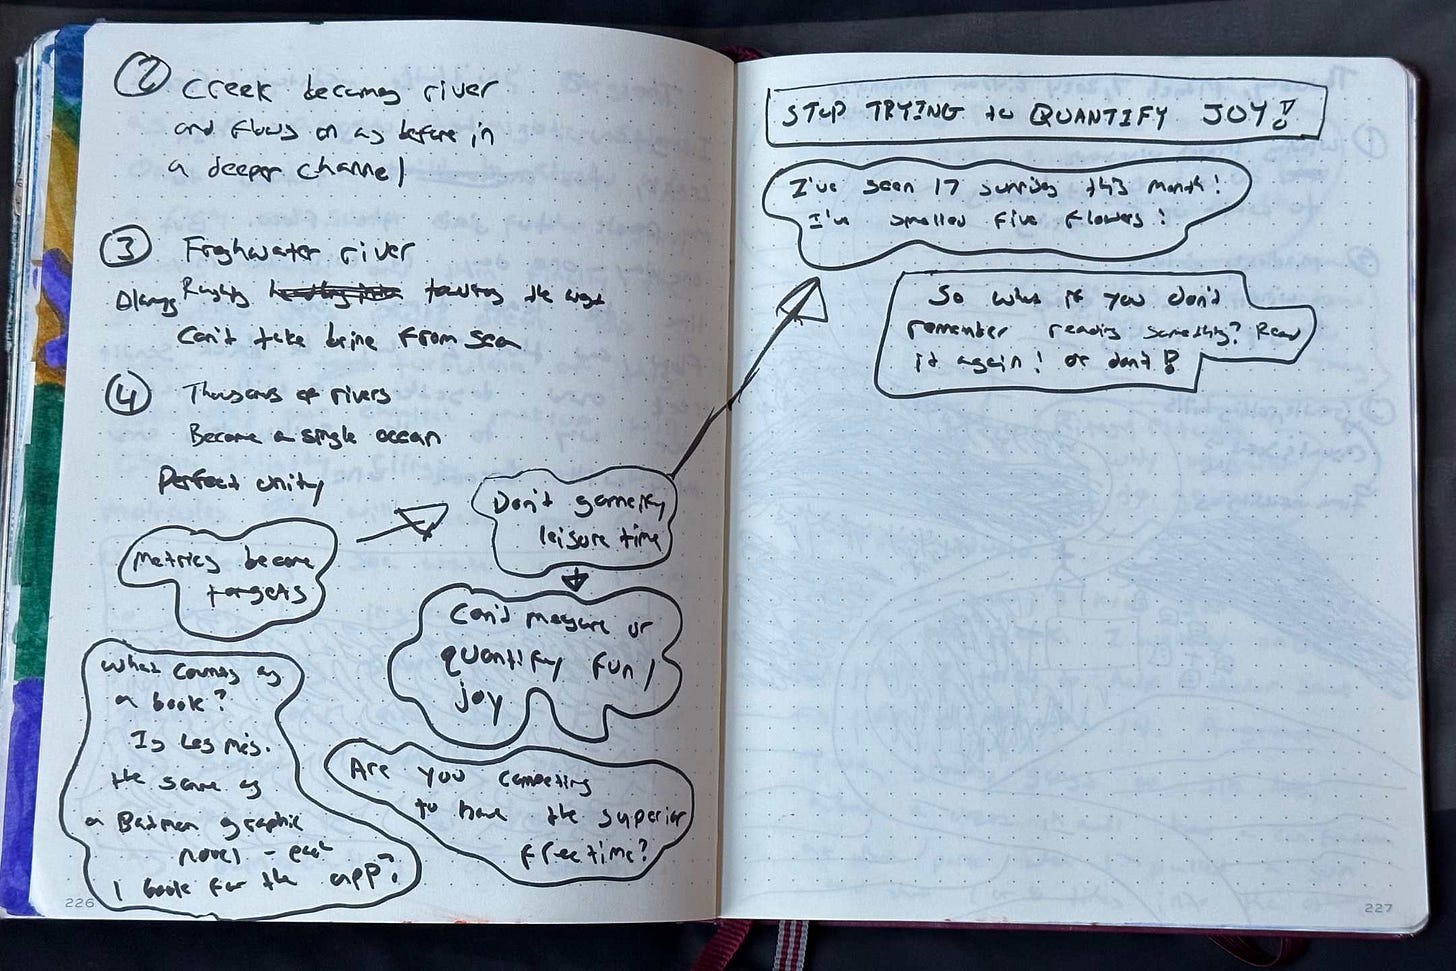 ② Creek becomes river
and flows on as before in
a deeper channel
③ Freshwater river
Always Rushing towards the
Can't take brine from sea
④ Thousands of rivers
Become a single ocean
Perfect unity
Metrics become
targets
Don't gamefy
leisure time
Can't measure or
quantify fun/
joy
What counts as
a book?
Is Les Mis.
the same as
a Batman graphic
novel - each
1 book for the app?
Are you competing
to have the superior
free time?
226
STOP TRYING to QUANTIFY JOY!
I've seen 17 sunrises this month!
I've smelled five flowers!
So what if you don't
remember reading something? Read
it again! or don't!
227